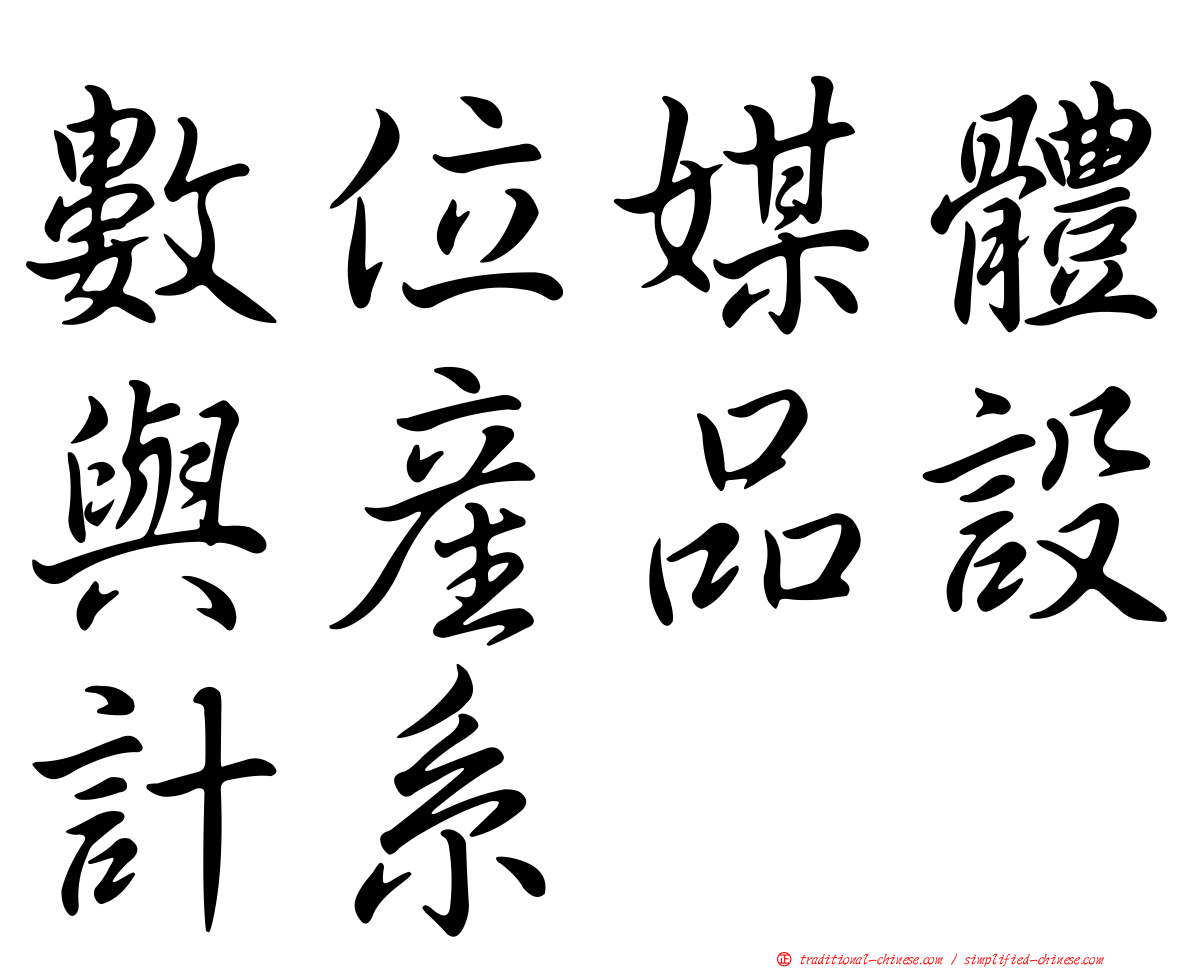 數位媒體
與產品設
計系
正 traditional-chinese.com / simplified-chinese.com